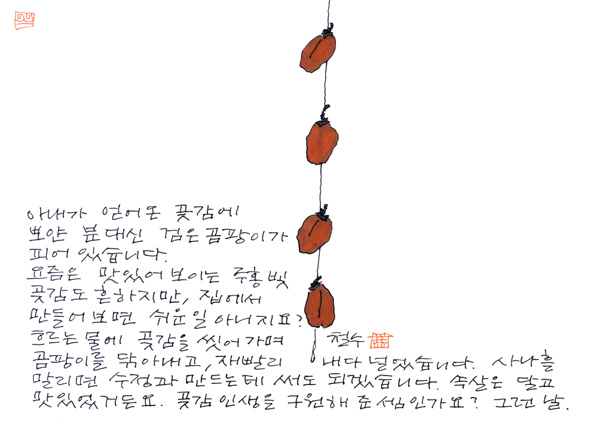 아내가 얻어온 곶감에
뽀얀 분대신 검은곰팡이가
피어 있습니다.
요즘은 맛있어보이는 주홍빛
곶감도 흔하지만, 집에서
만들어보면 쉬운일 아니지요?
흐르는 물에 곶감을 씻어가며 철수
곰팡이를 닦아내고, 재빨리 내다 널었습니다. 사나흘
말리면 수정과 만드는데 써도 되겠습니다. 속살은 달고
맛있었거든요. 곶감인생을 구원해준셈인가요? 그런 날.